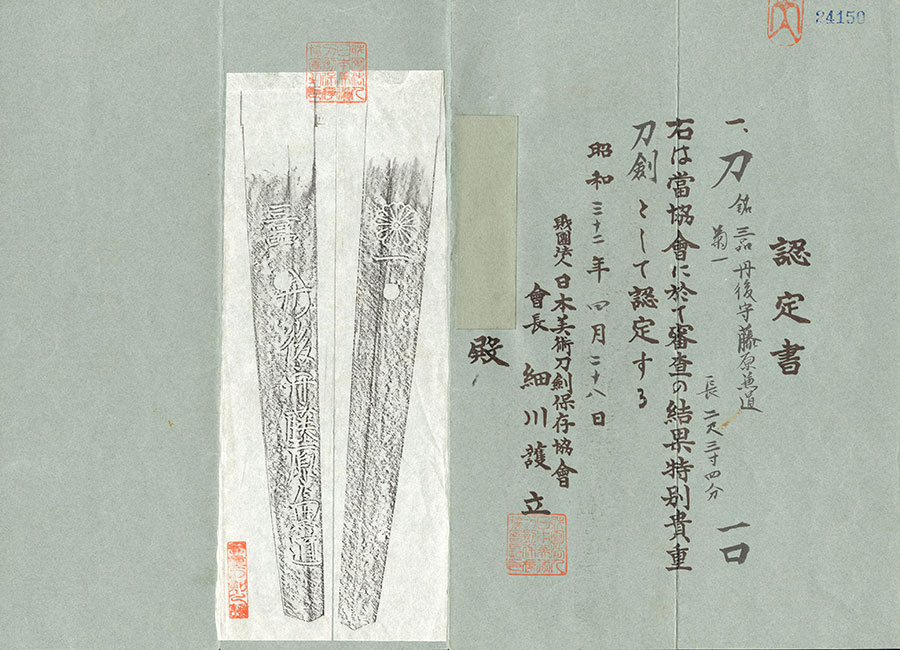 24150
認定書
一、刀 銘 三品丹後守藤原兼道
菊一
長 二尺三寸四分
一口
右は當協會に於て審査の結果特別貴重
刀劍として認定する
昭和三十二年四月二十八日
財團法人日本美術刀劍保存協會
會長 細川護立
殿
菊一
三品丹後守藤原兼道